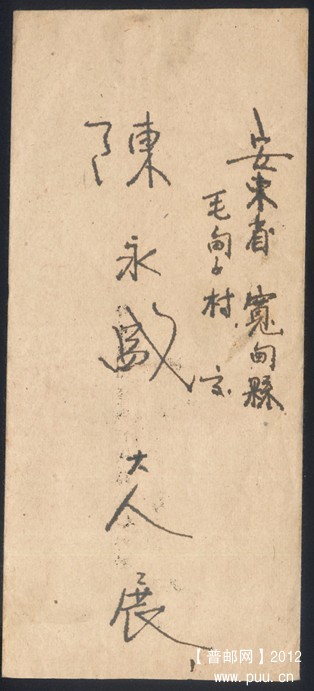 安東省 寬甸縣
毛甸子村 交
陳永盛 大人 展
【普邮网】2012
www.puu.cn